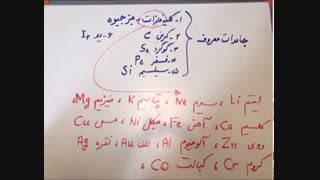 ۱. کلیه فلزات به جز جیوه
جامدات معروف
۲. کربن C
۶. ید I₂
۳. گوگرد S₈
۴. فسفر P₄
۵. سیلیسیم Si
لیتیم Li ، سدیم Na ، پتاسیم K ، منیزیم Mg
کلسیم Ca ، آهن Fe ، نیکل Ni ، مس Cu
روی Zn ، آلومینیوم Al ، طلا Au ، نقره Ag
کروم Cr ، کبالت CO